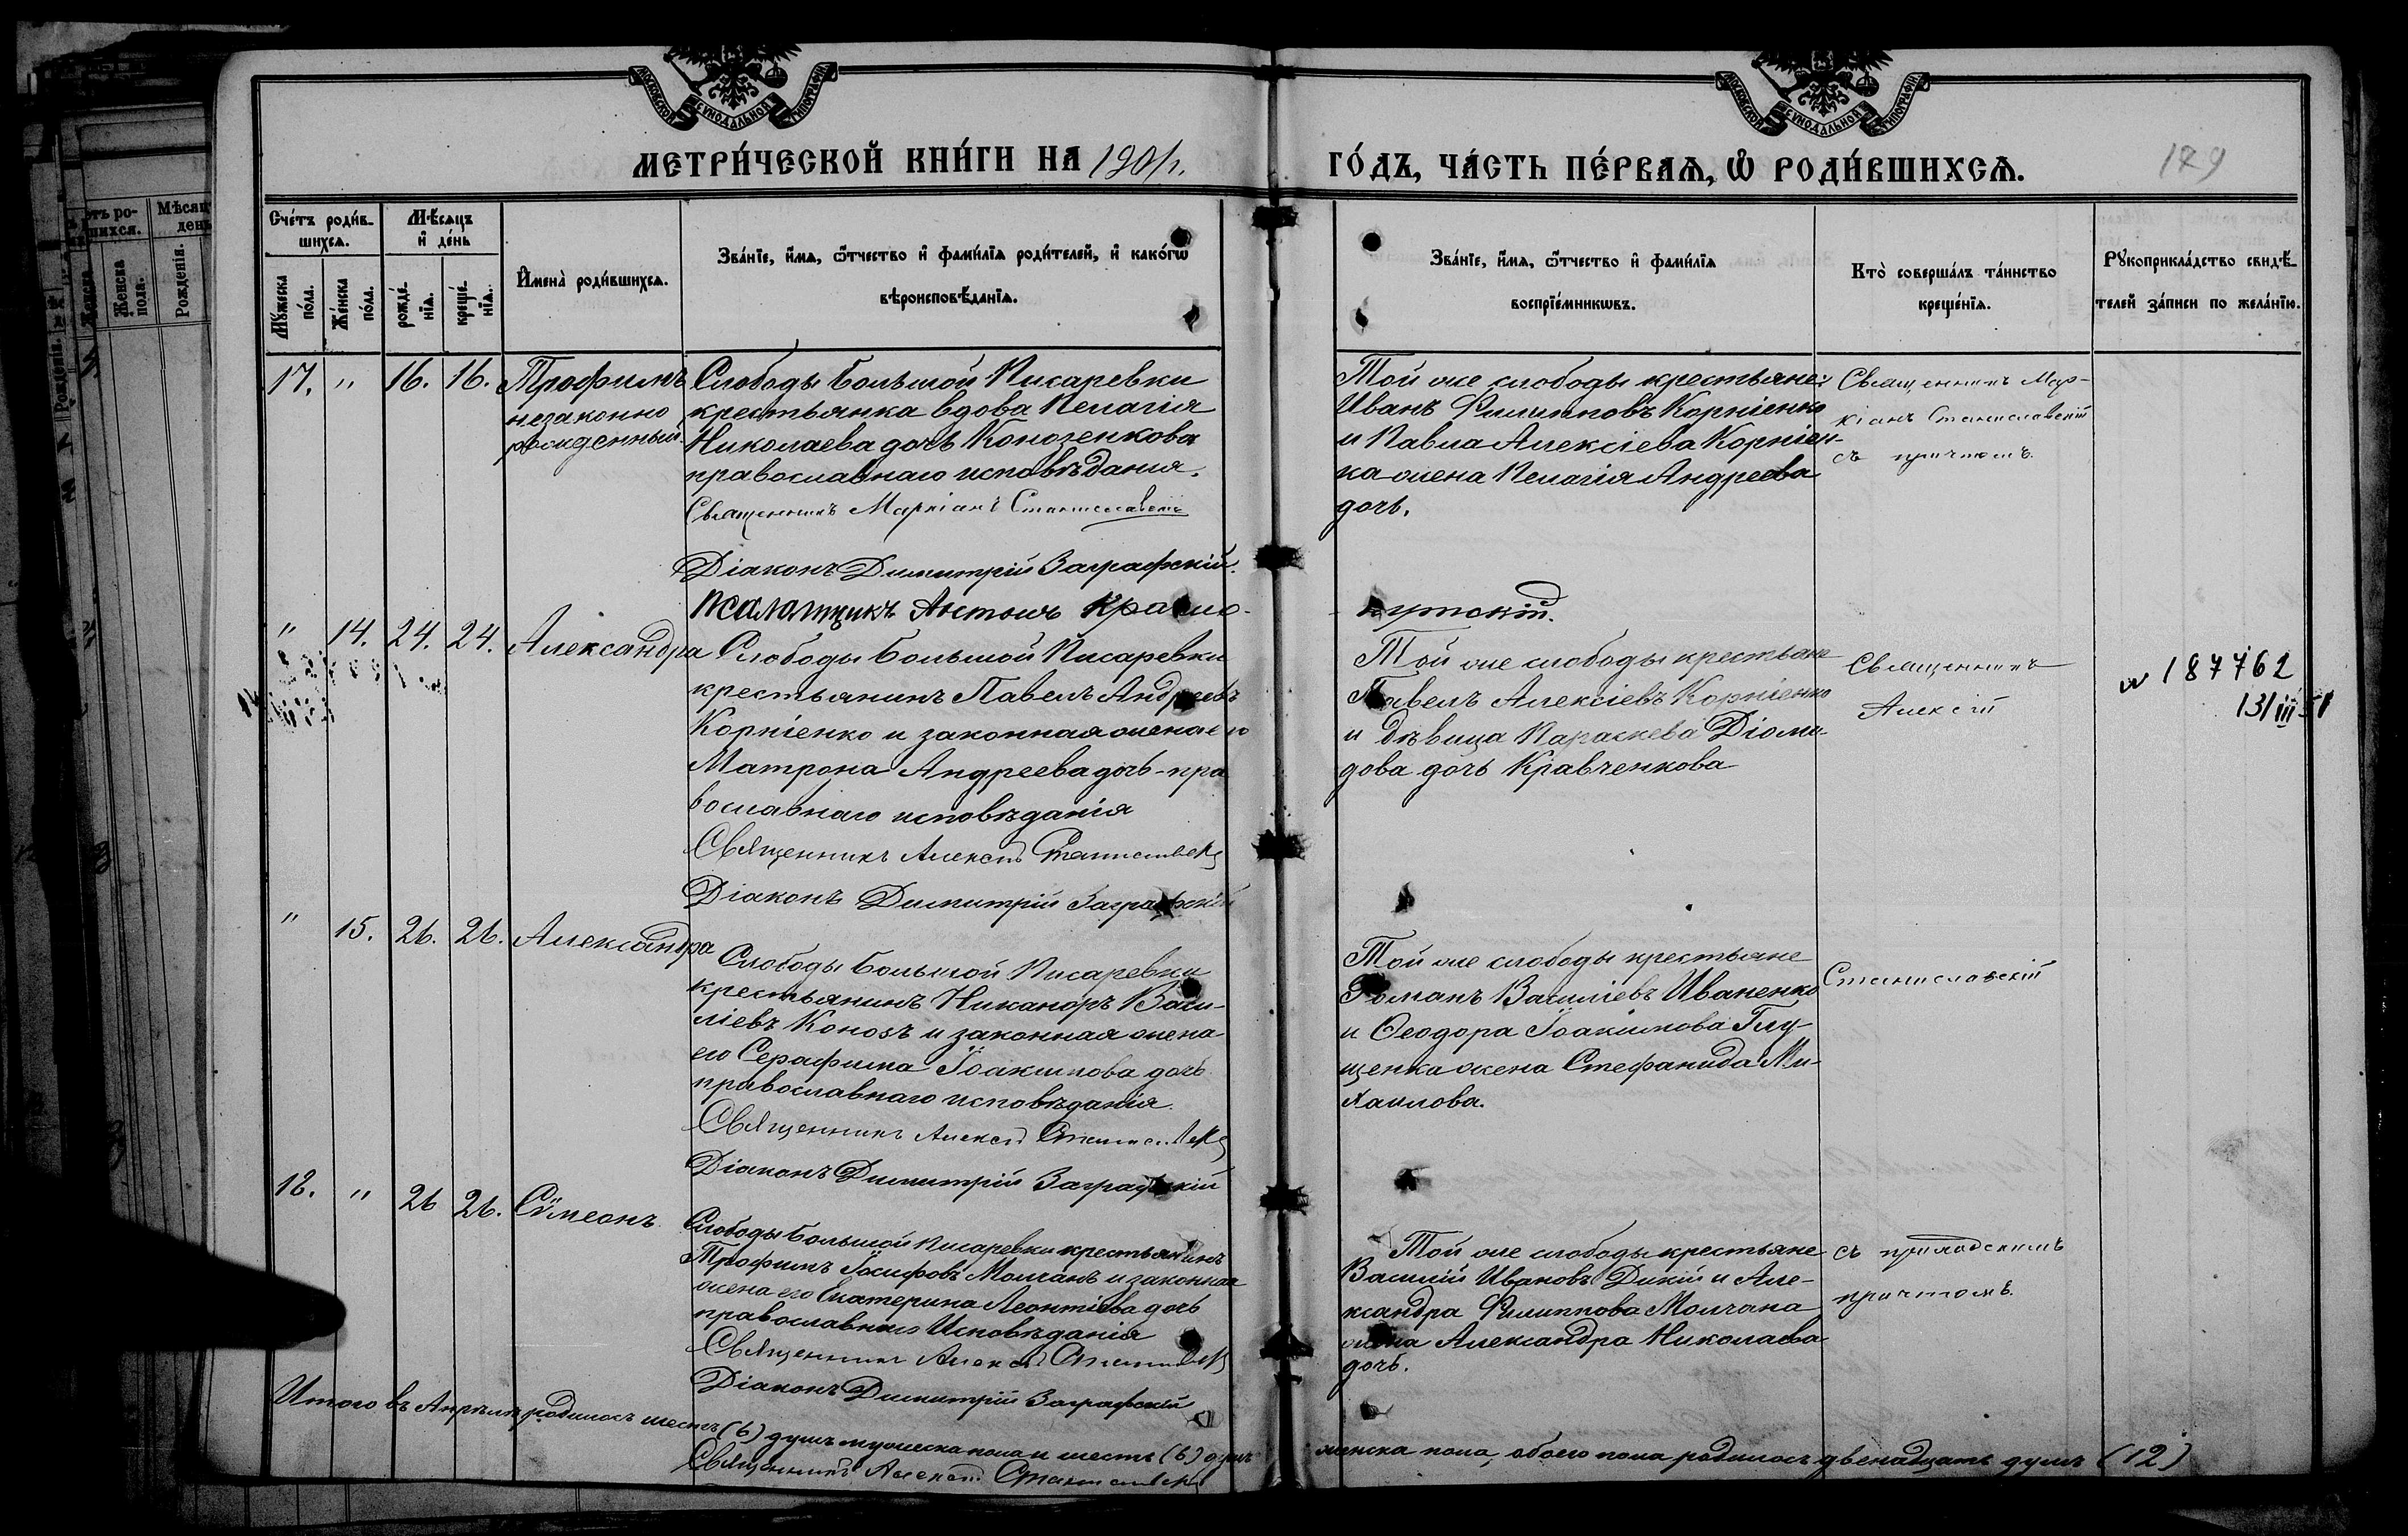 МОСКОВСКОЙ СѴНОДАЛЬНОЙ ТИПОГРАФІИ
МОСКОВСКОЙ СѴНОДАЛЬНОЙ ТИПОГРАФІИ
МЕТРИ́ЧЕСКОЙ КНИ́ГИ НА 1901 г.
ГО́ДЪ, ЧА́СТЬ ПЕ́РВАѦ, Ѡ҆ РОДИ́ВШИХСѦ.
129
Сче́тъ роди́в-
шихсѧ.
Мѣ́сѧцъ
и҆ де́нь
Мꙋ́жеска по́ла.
Же́нска по́ла.
рожде́-
нїѧ.
креще́-
нїѧ.
И҆мена̀ роди́вшихсѧ.
Зва́нїе, и҆́мѧ, ѻ҆́тчество и҆ фами́лїѧ роди́телей, и҆ како́гѡ
вѣроисповѣ́данїѧ.
Зва́нїе, и҆́мѧ, ѻ҆́тчество и҆ фами́лїѧ
воспрїе́мникѡвъ.
Кто̀ соверша́лъ та́инство
креще́нїѧ.
Рꙋкоприкла́дство свидѣ́-
телей за́писи по жела́нїю.
17. " 16. 16. Трофимъ
незаконно
рожденный.
Слободы Большой Писаревки
крестьянка вдова Пелагія
Николаева дочь Конозенкова
православнаго исповѣдания.
Священникъ Маркіанъ Станиславскій
Діаконъ Димитрій Заграфскій.
Псаломщикъ Антонъ Красно-
Той же слободы крестьяне:
Иванъ Филипповъ Корніенко
и Павла Алексіева Корніен-
ка жена Пелагія Андреева
дочь.
кутскій.
Священникъ Мар-
кіанъ Станиславскій
съ причтомъ.
" 14. 24. 24. Александра
Слободы Большой Писаревки
крестьянинъ Павелъ Андреевъ
Корніенко и законная жена его
Матрона Андреева дочь - пра
вославнаго исповѣданія
Священникъ Алексій Станиславскій
Діаконъ Димитрій Заграфскій
Той же слободы крестьяне
Павелъ Алексіевъ Корніенко
и дѣвица Параскева Діоми-
дова дочь Кравченкова
Священникъ
Алексій
N 187762
13/III 51
" 15. 26. 26. Александра
Слободы Большой Писаревки
крестьянинъ Никаноръ Васи-
ліевъ Конозъ и законная жена
его Серафима Іоакимова дочь
православнаго исповѣданія.
Священникъ Алексій Станиславскій
Діаконъ Димитрій Заграфскій
Той же слободы крестьяне
Романъ Василіевъ Иваненко
и Ѳеодора Іоакимова Глу-
щенка жена Стефанида Ми-
хаилова.
Станиславскій
18. " 26 26. Сѵмеонъ
Слободы Большой Писаревки крестьянинъ
Трофимъ Іосифовъ Молчанъ и законная
жена его Екатерина Леонтіева дочь
православнаго Исповѣданія
Священникъ Алексій Станиславскій
Діаконъ Димитрій Заграфскій
Той же слободы крестьяне
Василій Ивановъ Дикій и Але-
ксандра Филиппова Молчана
жена Александра Николаева
дочь.
съ приходскимъ
причтомъ.
Итого въ Апрѣлѣ родилось шесть (6) душъ мужеска пола и шесть (6) душъ
женска пола, обоего пола родилось двенадцать душъ (12)
Священникъ Алексій Станиславскій